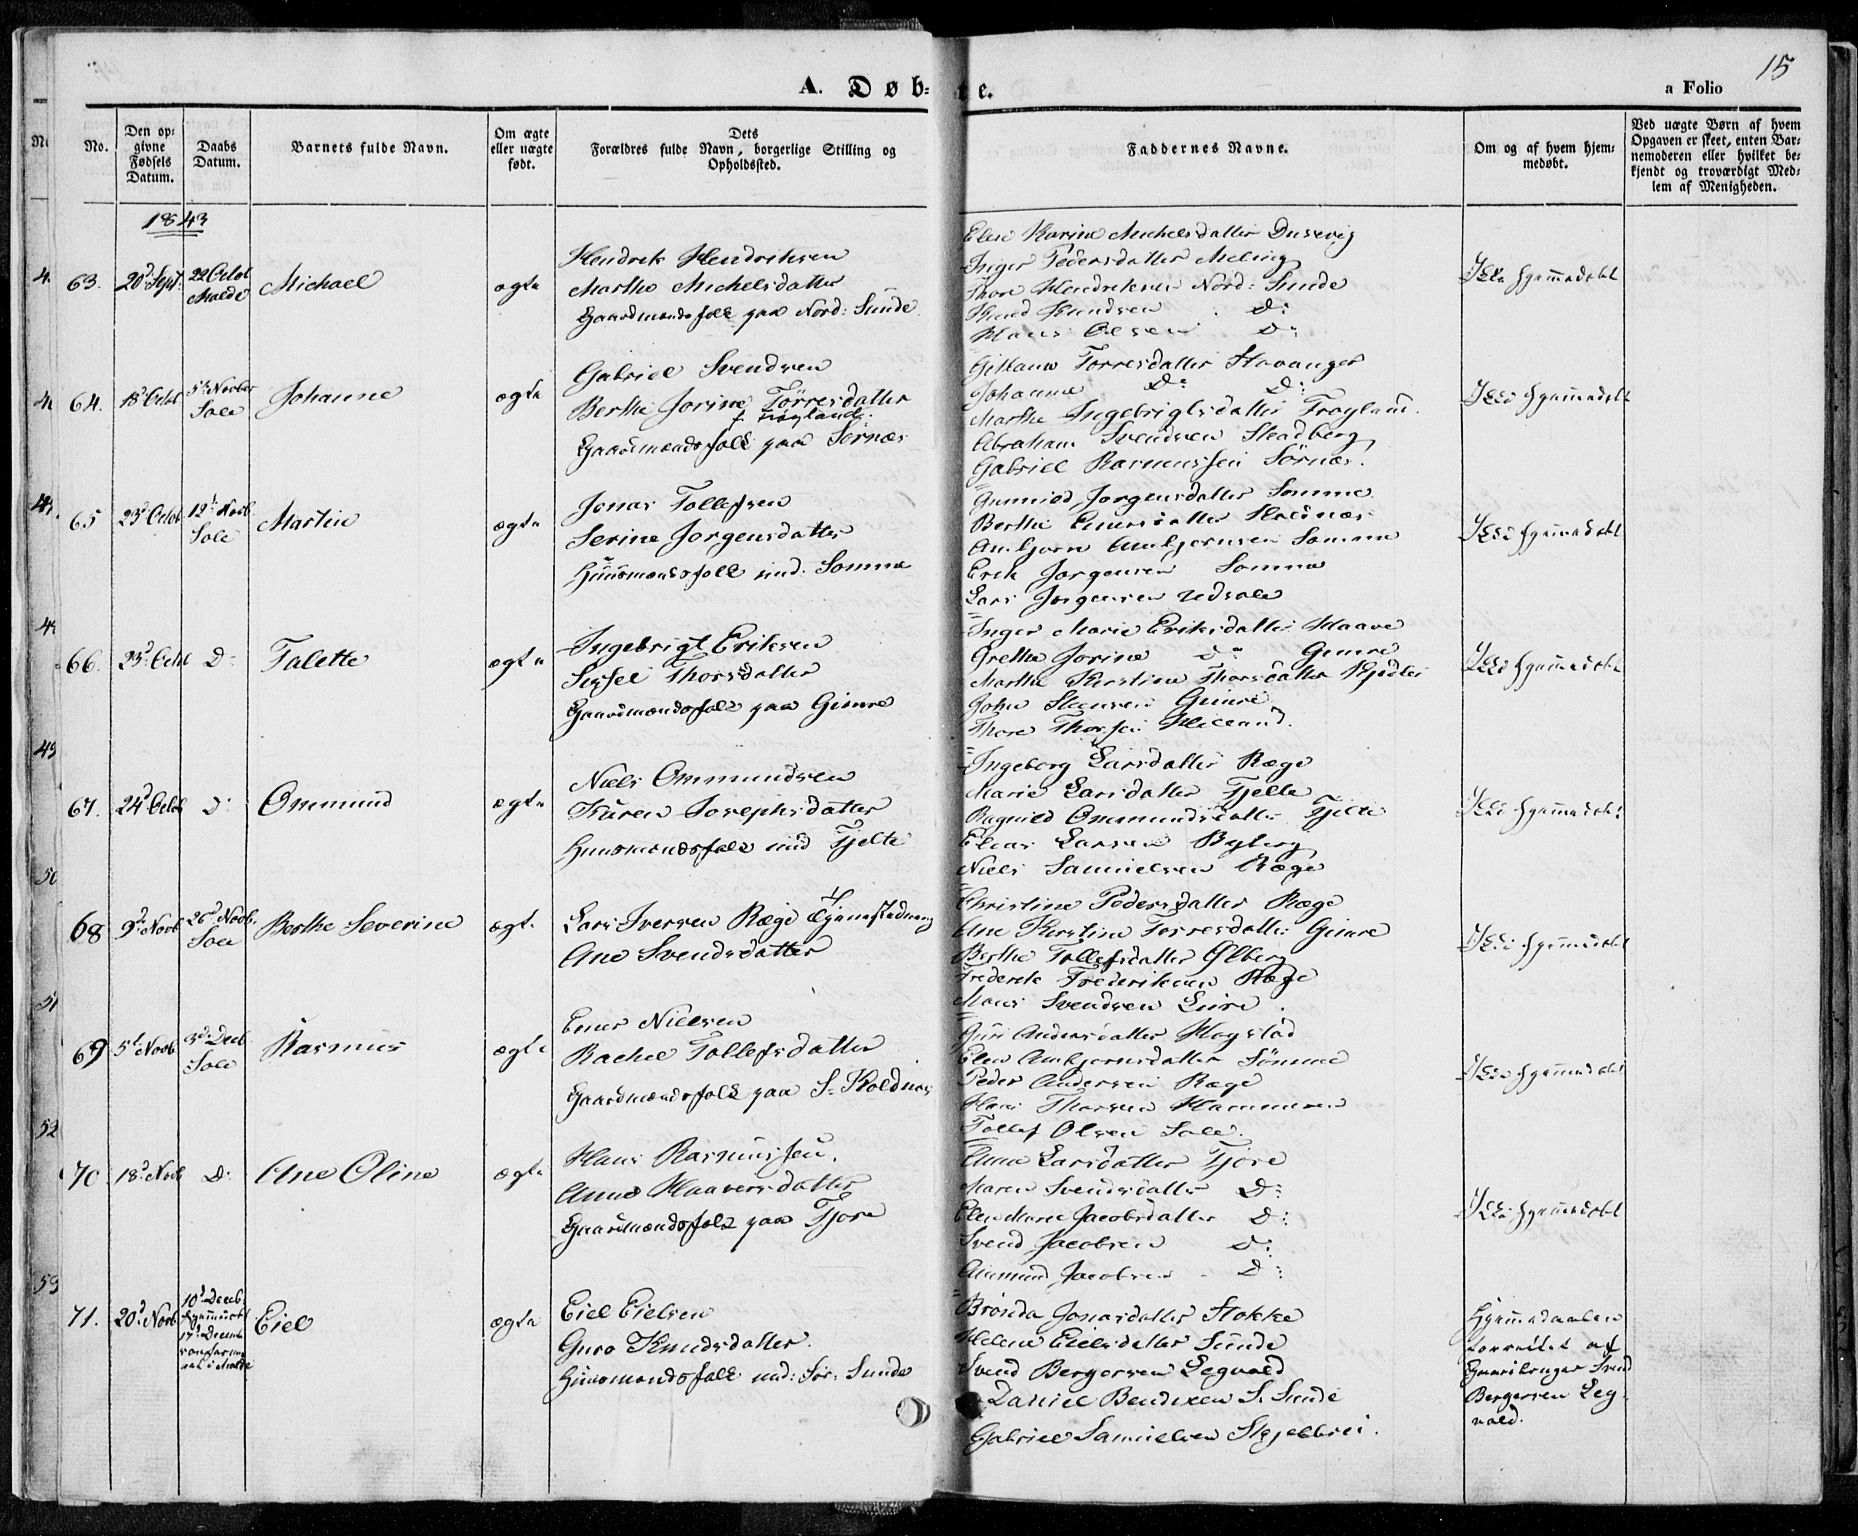 15
A. Døb=te.
a Folio
No.
Den op=
givne
Fødsels
Datum.
Daabs
Datum.
Barnets fulde Navn.
Om ægte
eller uægte
født.
Dets
Forældres fulde Navn, borgerlige Stilling og
Opholdssted.
Faddernes Navne.
Om og af hvem hjem=
medøbt.
Ved uægte Børn af hvem
Opgaven er skeet, enten Bar=
nemoderen eller hvilket be=
kjendt og troværdigt Med=
lem af Menigheden.
1843
63. 20d Sept. 22 Octob
Malde
Michael
ægte
Hendrik Hendriksen
Marthe Michelsdatter
Gaardmandsfolk paa Nord: Sunde
Elen Karine Michelsdatter Dusevig
Inger Pedersdatter Meling
Thore Hendriksen Nord: Sunde
Knud Knudsen D:
Hans Olsen D:
Ikke hjemmedøbt
64. 18d Octob 5te Novbr
Sole
Johanne
ægte
Gabriel Svendsen
Berthe Jorine Törresdatter
f. Frøyland.
Gaardmandsfolk paa Sörnæs
Torresdatter Stavanger
Johanne D: D:
Marthe Ingebrigtsdatter Frøyland.
Abraham Svendsen Stadberg
Gabriel Rasmussen Sörnæs.
Ikke hjemmedøbt
65 23d Octob. 12t Novb.
Sole
Martin
ægte
Jonas Tollefsen
Serine Jorgensdatter
Huusmandsfolk und. Somme
Gunnild Jorgensdatter Somme
Berthe Enersdatter Koldnæs
Ambjorn Ambjornsen Somme
Erik Jorgensen Somme
Lars Jorgensen Udsole
Ikke hjemmedøbt
66. 23d Octb D:
Talette
ægte
Ingebrigt Eriksen
Sissel Thorsdatter
Gaardmandsfolk paa Gimre
Inger Marie Eriksdatter Haave
Grethe Jorine Do Gimre
Marthe Kirstine Thorsdatter Kjödler
John Gimre
Thore Thorsen
Ikke hjemmedøbt
67. 24d Octob D:
Ommund
ægte
Niels Ommundsen
Karen Josephsdatter
Huusmandsfolk und Tjelte
Ingeborg Larsdatter Ræge
Marie Larsdatter Tjelte
Ragnild Ommundsdatter Tjelte
Elias Larsen Byberg
Niels Samuelsen Ræge
Ikke hjemmedøbt
68 9de Novb 26d Novb.
Sole
Berthe Severine
ægte
Lars Iversen Ræge
Ane Svendsdatter
Christine Pedersdatter Ræge
Ane Kirstine Torresdatter Gimre
Berthe Tollefsdatter Ølberg
Frederik Frederiksen Ræge
Mons Svendsen Leire
Ikke hjemmedøbt
69 5t Novb. 3d Decb
Sole
Rasmus
ægte
Ener Nielsen
Rachel Tollefsdatter
Gaardmandsfolk paa S- Koldnæs
Guri Andersdatter Hogstad
Elen Ambjornsdatter Sömme
Peder Andersen Ræge
Hans Thorsen Hammeren
Tollef Olsen Sole.
Ikke hjemmedøbt
70 18d Novb D:
Ane Oline
ægte
Hans Rasmussen.
Anne Haaversdatter
Gaardmandsfolk paa Tjore
Anne Larsdatter Tjore
Maren Svendsdatter D:
Elen Marie Jacobsdatter D:
Svend Jacobsen D:
Ammund Jacobsen D:
Ikke hjemmedøbt
71. 20d Novb. 10d Decb.
hjemmedøbt
17d Decemb
i Malde
Eiel
ægte
Eiel Eielsen
Guro Knudsdatter.
Huusmandsfolk und: Sör: Sunde
Brönla Jonasdatter Stokke
Helene Eielsdatter Sunde
Svend Bergersen Legvold
Daniel Bendixen S. Sunde
Gabriel Samuelsen Skjelbrei.
Hjemmedaaben
forrettet af
Gaardbruger Svend
Bergersen Leg-
vold.